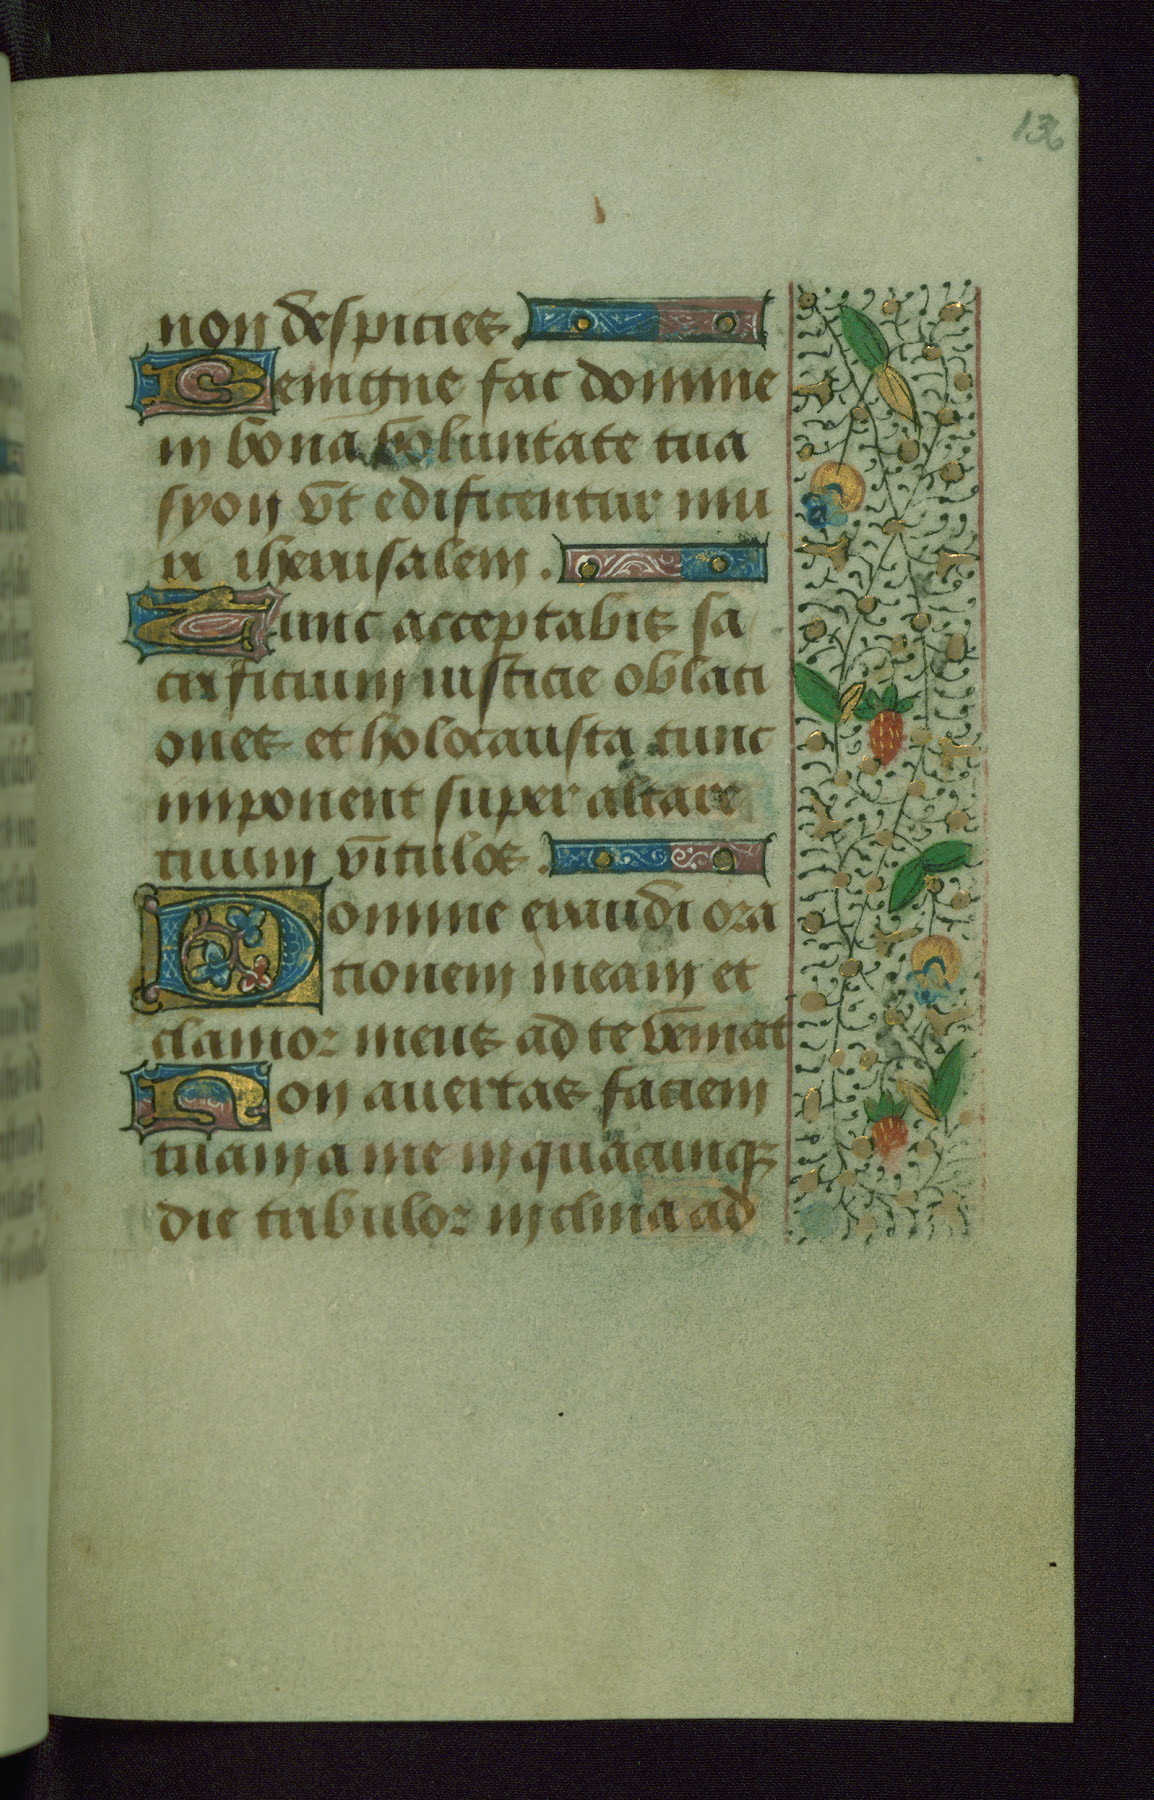 136
non despicies.
Benigne fac domine
in bona voluntate tua
syon vt edificentur mu
ri iherusalem.
Tunc acceptabis sa
crificium iusticie oblaci
ones et holocausta tunc
imponent super altare
tuum vitulos.
Domine exaudi ora
tionem meam et
clamor meus ad te veniat
Non auertas faciem
tuam a me in quacunqꝫ
die tribulor inclina ad